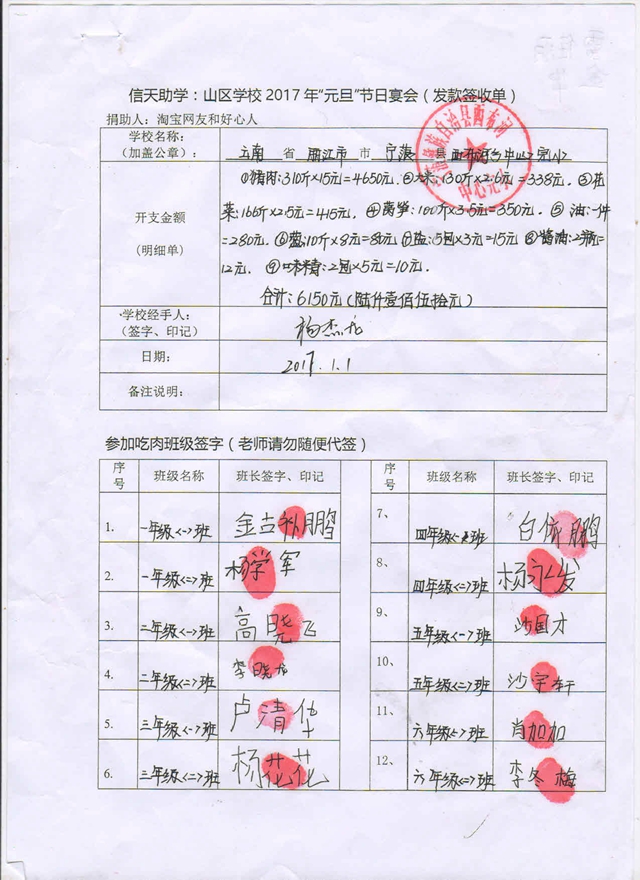 信天助学：山区学校2017年“元旦”节日宴会（发款签收单）
捐助人：淘宝网友和好心人
学校名称：
（加盖公章）：
云南 省 丽江市 市 宁蒗 县 西布河乡中心完小
开支金额
（明细单）
①猪肉:310斤×15元=4650元. ②大米:130斤×2.6元=338元. ③花
菜:166斤×2.5元=415元. ④莴笋:100斤×3.5元=350元. ⑤油:一件
=280元. ⑥葱:10斤×8元=80元 ⑦盐:5包×3元=15元 ⑧酱油:2瓶=
12元. ⑨味精:2包×5元=10元.
合计:6150元(陆仟壹佰伍拾元)
学校经手人：
（签字、印记）
杨杰龙
日期：
2017.1.1
备注说明：
自治县西布河
中心完小
参加吃肉班级签字（老师请勿随便代签）
序号 班级名称 班长签字、印记 序号 班级名称 班长签字、印记
1. 一年级<一>班 金古补鹏 7、 四年级<一>班 白依鹏
2. 一年级<二>班 杨学军 8、 四年级<二>班 杨永发
3. 二年级<一>班 高晓飞 9、 五年级<一>班 沙国才
4. 二年级<二>班 李晓龙 10、 五年级<二>班 沙宇轩
5. 三年级<一>班 卢清华 11、 六年级<一>班 肖加加
6. 三年级<二>班 杨花花 12、 六年级<二>班 李冬梅